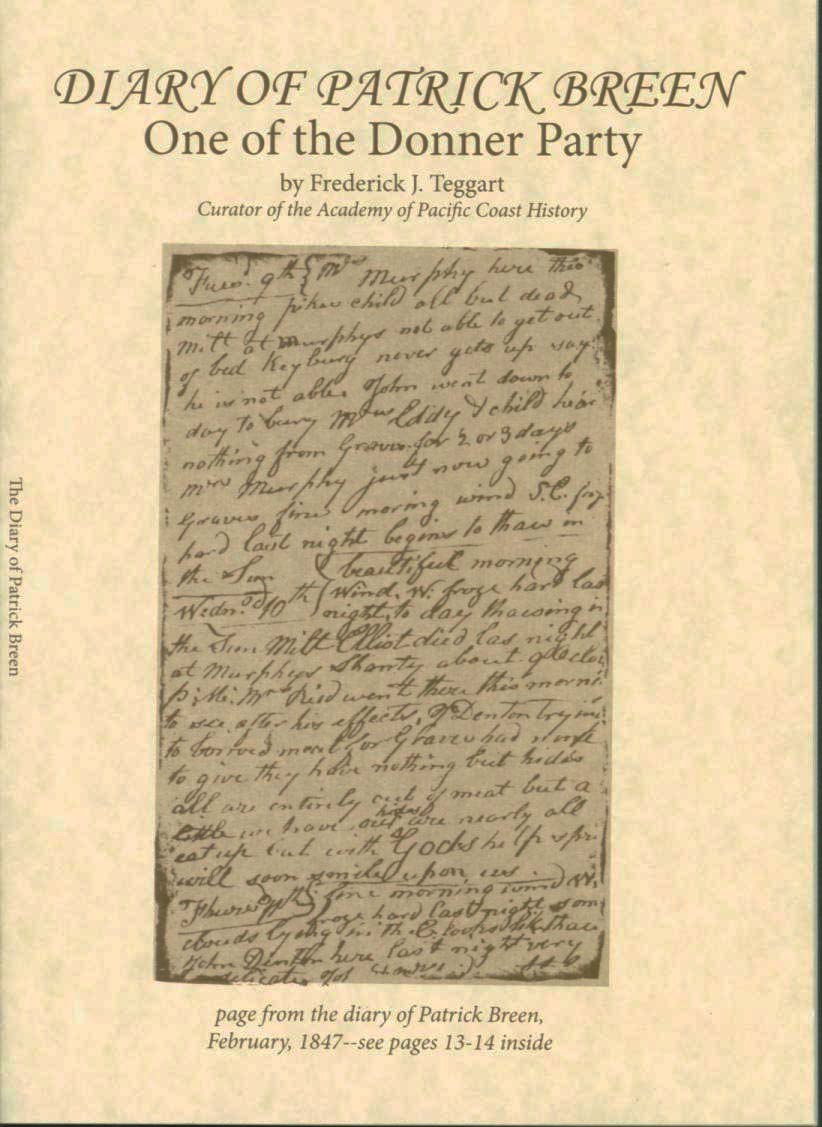 DIARY OF PATRICK BREEN
One of the Donner Party
by Frederick J. Teggart
Curator of the Academy of Pacific Coast History
Tues.d 9th { Mrs Murphy here this
morning pikes child all but dead
Milt at Murphys not able to get out
of bed Keyburg never gets up says
he is not able. John went down to
day to bury Mrs Eddy & child hear
nothing from Graves for 2 or 3 days
Mrs Murphy just now going to
Graves fine moring wind S.E. froze
hard last night begins to thaw in
the Sun
Wednd. 10th { beautiful morning
Wind. W. froze hard last
night, to day thawing in
the Sun Milt Elliot died las night
at Murphys Shanty about 9 oclock
P: M: Mrs Reid went there this morning
to see after his effects, J Denton trying
to borrow meat for Graves had none
to give they have nothing but hides
all are entirely out of meat but a
little we have our hides are nearly all
eat up but with Gods help spring
will soon smile upon us.
Thursd 11th } fine morning wind W.
froze hard last night some
clouds lying in the E. looks like thaw
John Denton here last night very
delicate. John
page from the diary of Patrick Breen,
February, 1847--see pages 13-14 inside
The Diary of Patrick Breen